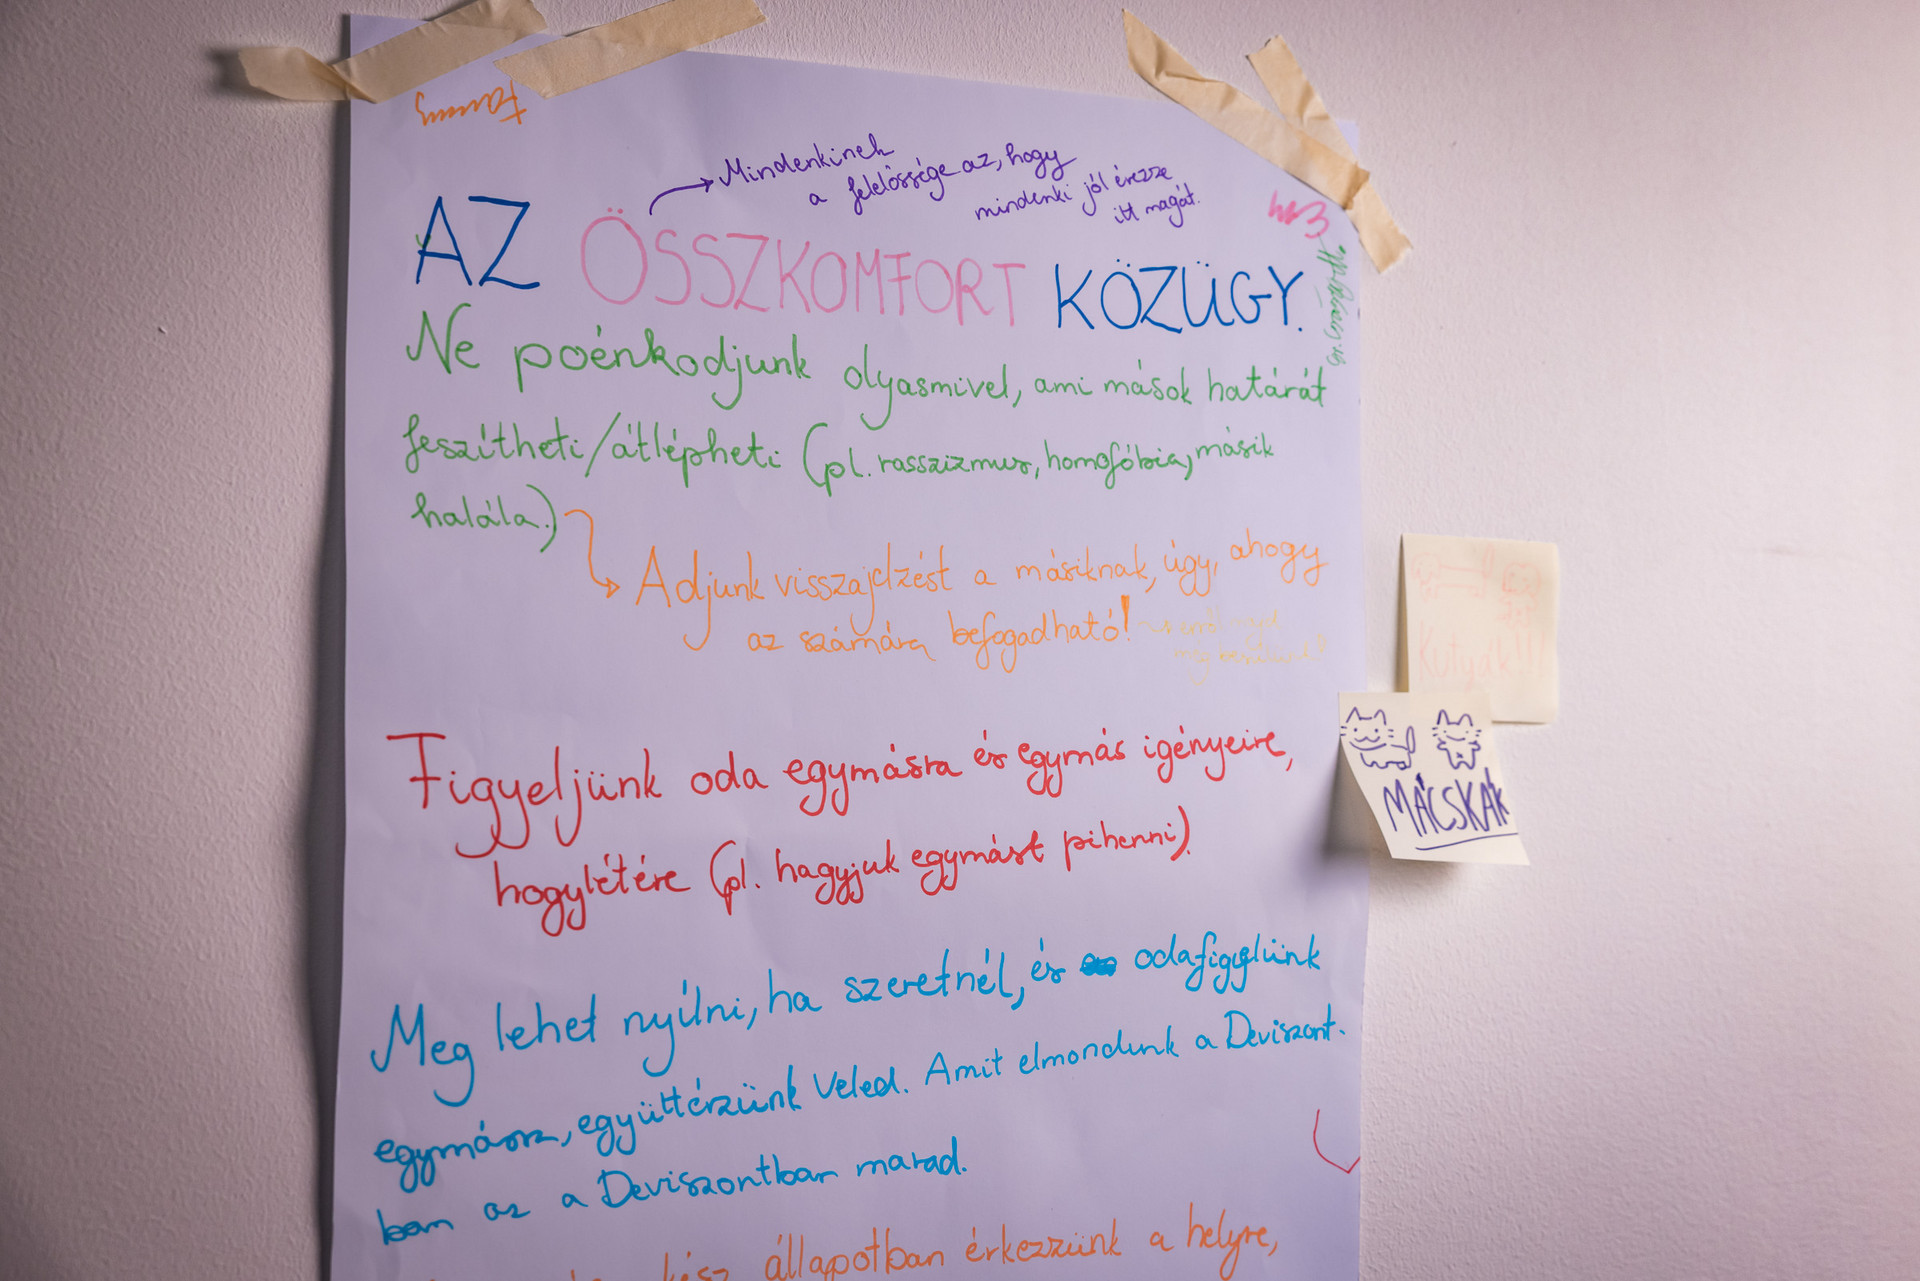 Fanny
Mindenkinek
a felelőssége az, hogy
mindenki jól érezze
itt magát.
AZ ÖSSZKOMFORT KÖZÜGY.
Ne poénkodjunk olyasmivel, ami mások határát
feszítheti/átlépheti (pl. rasszizmus, homofóbia, másik
halála.)
Adjunk visszajelzést a másiknak, úgy, ahogy
az számára befogadható!
Kutyák!!!
MÁCSKÁK
Figyeljünk oda egymásra és egymás igényeire,
hogylétére (pl. hagyjuk egymást pihenni).
Meg lehet nyílni, ha szeretnél, és odafigyelünk
egymásra, együttérzünk Veled. Amit elmondunk a Deviszont-
ban az a Deviszontban marad.
kész állapotban érkezzünk a helyre,